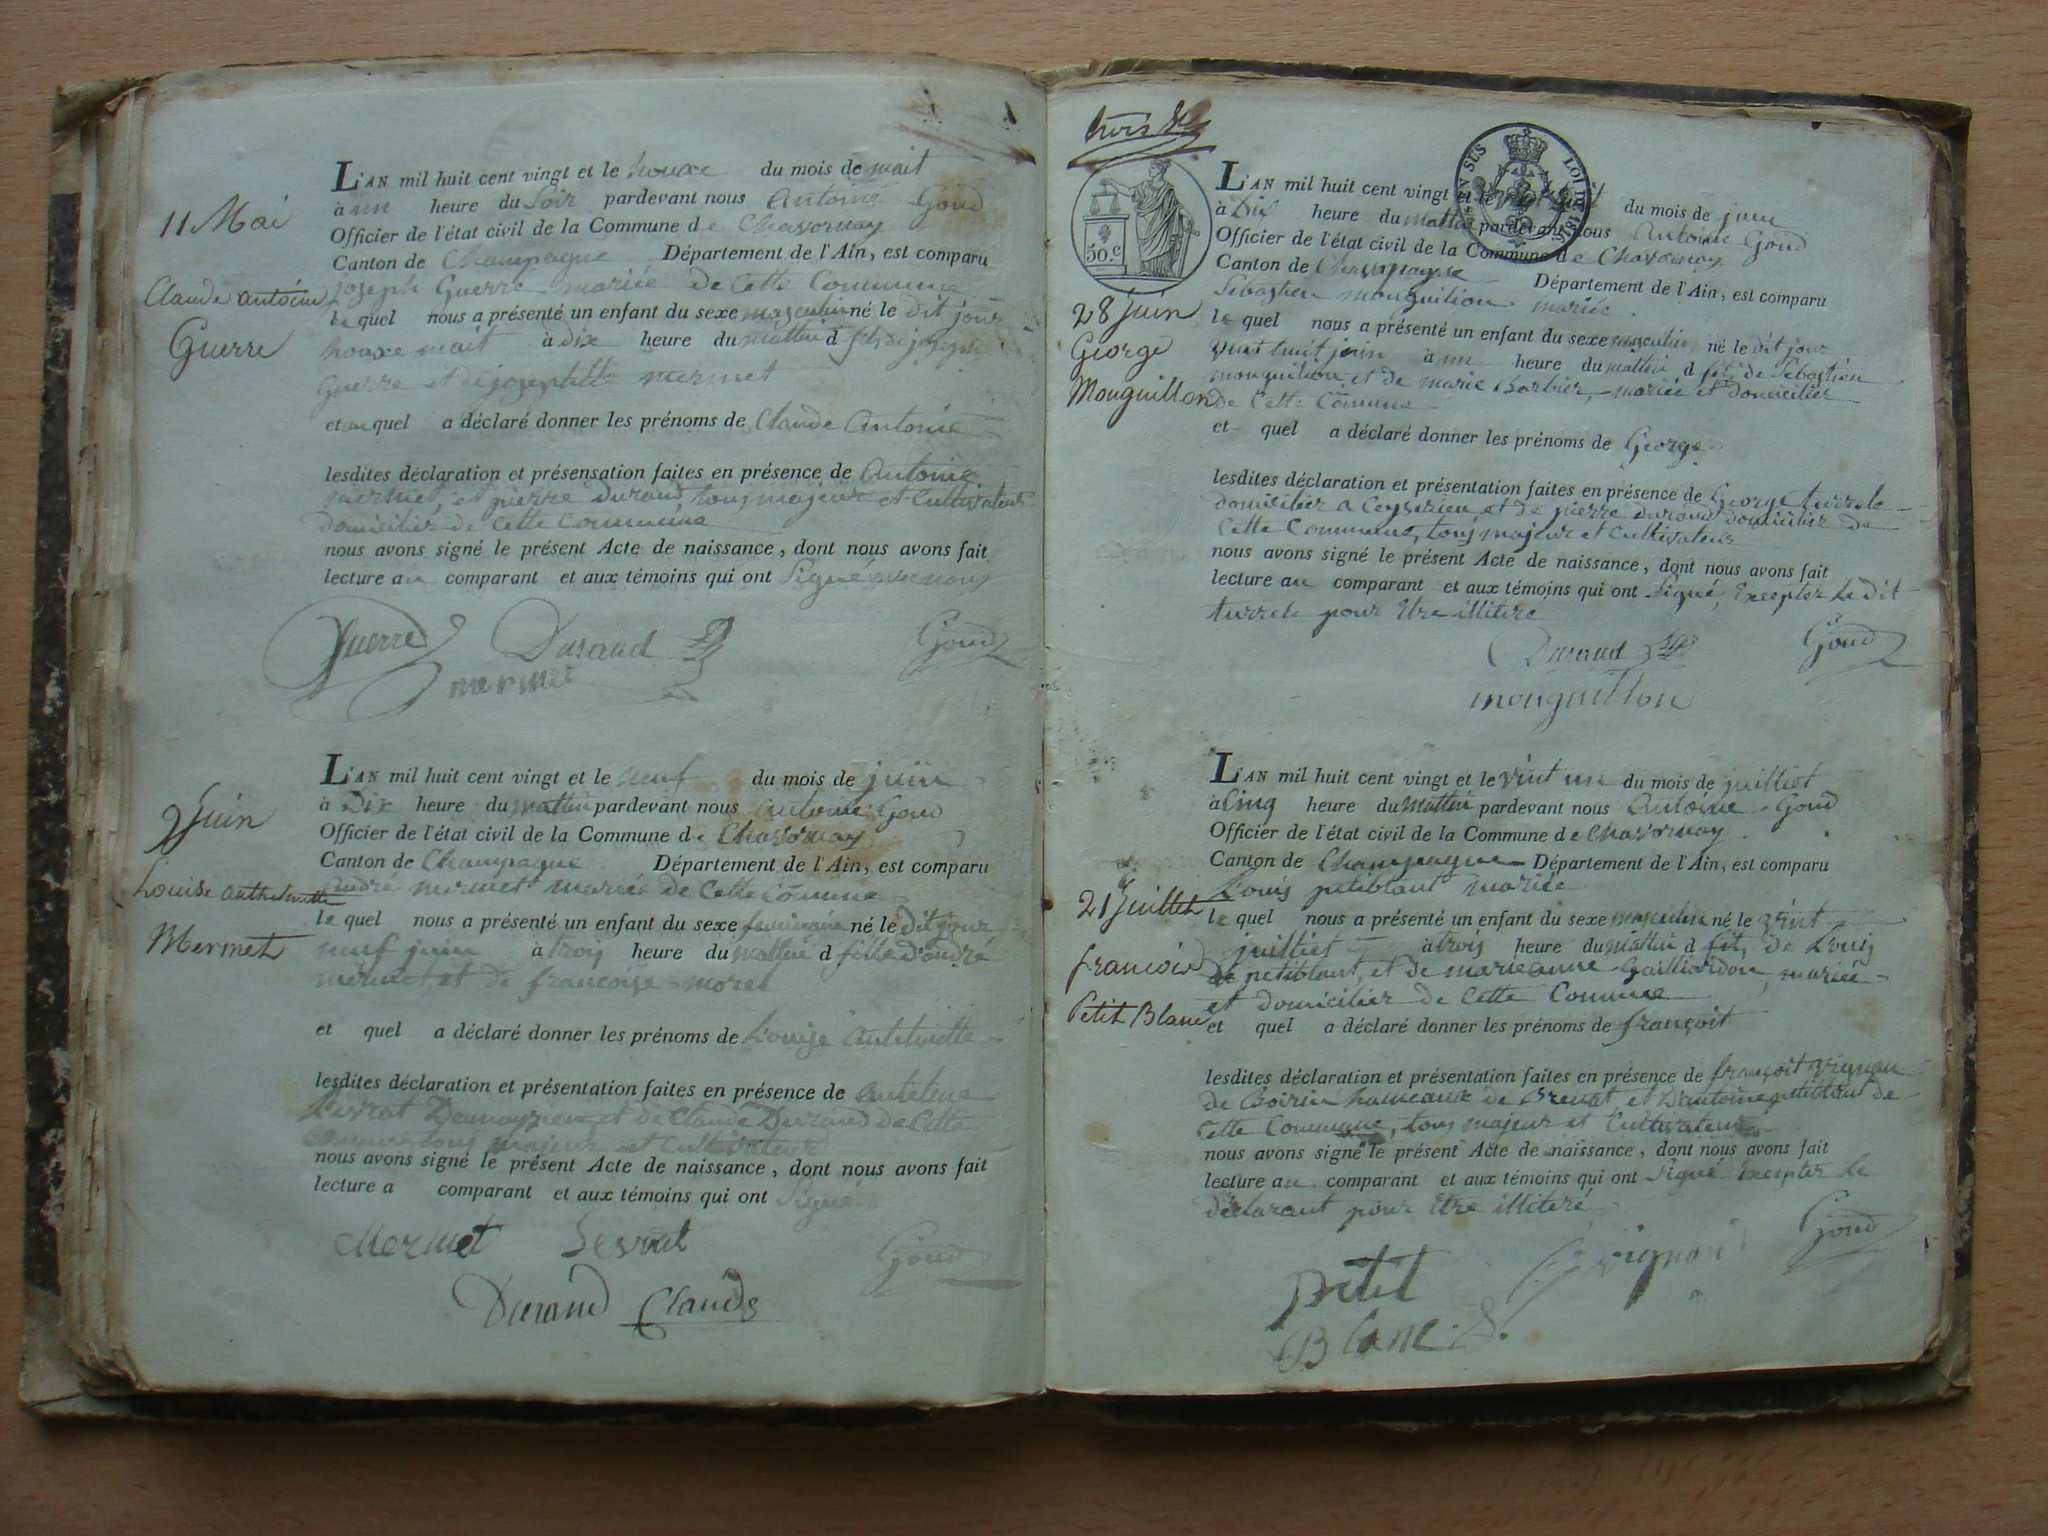 11 Mai
Claude antoine
Guerre
L'AN mil huit cent vingt et le houxe du mois de mait
à un heure du Soir pardevant nous Antoine Goud
Officier de l'état civil de la Commune de Chavornay
Canton de Champagne Département de l'Ain, est comparu
joseph Guerre mariée de Cette Commune
le quel nous a présenté un enfant du sexe masculin né le dit jour
houxe mait à dix heure du mattin d fils de joseph
Guerre et de josephtte mermet
et quel a déclaré donner les prénoms de Claude Antoine
lesdites déclaration et présensation faites en présence de Antoine
mermet, et pierre durand, tous majeur et Cultivateur
domicilier de Cette Commune
nous avons signé le présent Acte de naissance, dont nous avons fait
lecture au comparant et aux témoins qui ont Signé avec nous
Guerre Durand Goud
mermet
9 Juin
Louise anthelmette
Mermet
L'AN mil huit cent vingt et le neuf du mois de juin
à Dix heure du mattin pardevant nous Antoine Goud
Officier de l'état civil de la Commune de Chavornay
Canton de Champagne Département de l'Ain, est comparu
andré mermet mariée de Cette Commune
le quel nous a présenté un enfant du sexe feminine né le dit jour
neuf juin à trois heure du mattin d fille d'andré
mermet, et de françoise morel
et quel a déclaré donner les prénoms de Louise antelmette
lesdites déclaration et présentation faites en présence de Antelme
Sevrat et de Claude Durand de Cette
Commune tous majeur et Cultivateur
nous avons signé le présent Acte de naissance, dont nous avons fait
lecture a comparant et aux témoins qui ont Signé
Mermet Sevrat Goud
Durand Claude
trois
50.c
EN SUS LOI DE 1816
28 juin
George
Mouguillon
L'AN mil huit cent vingt et le vingt huit du mois de juin
à Dix heure du mattin pardevant nous Antoine Goud
Officier de l'état civil de la Commune de Chavornay
Canton de Champagne Département de l'Ain, est comparu
Sébastien mouguilion mariée
le quel nous a présenté un enfant du sexe masculin né le dit jour
vint huit juin à un heure du mattin d fils de Sébastien
mouguilion, et de marie Barbier, mariée et domicilier
De Cette Commune
et quel a déclaré donner les prénoms de George
lesdites déclaration et présentation faites en présence de George turrele
domicilier a Ceyserieu et de pierre durand domicilier de
Cette Commune, tous majeur et Cultivateur
nous avons signé le présent Acte de naissance, dont nous avons fait
lecture au comparant et aux témoins qui ont Signé, Excepter le dit
turrele pour Etre illitéré
Durand Goud
mouguillon
21 Juillet
francois
Petit Blanc
L'AN mil huit cent vingt et le vint un du mois de juilliet
à Cinq heure du mattin pardevant nous Antoine Goud
Officier de l'état civil de la Commune de Chavornay
Canton de Champagne Département de l'Ain, est comparu
Louis petiblant mariée
le quel nous a présenté un enfant du sexe masculin né le vint
juilliet à trois heure du mattin d fils, de Louis
de petiblant, et de marieanne Gailliardon, mariée
et domicilier de Cette Commune
et quel a déclaré donner les prénoms de françoit
lesdites déclaration et présentation faites en présence de françoit vignau
de Boirin hameaux de Brenat et D'antoine petitblant de
Cette Commune, tous majeur et Cultivateur
nous avons signé le présent Acte de naissance, dont nous avons fait
lecture au comparant et aux témoins qui ont Signé Excepter le
déclarant pour Etre illitéré
Petit Goud
Blanc